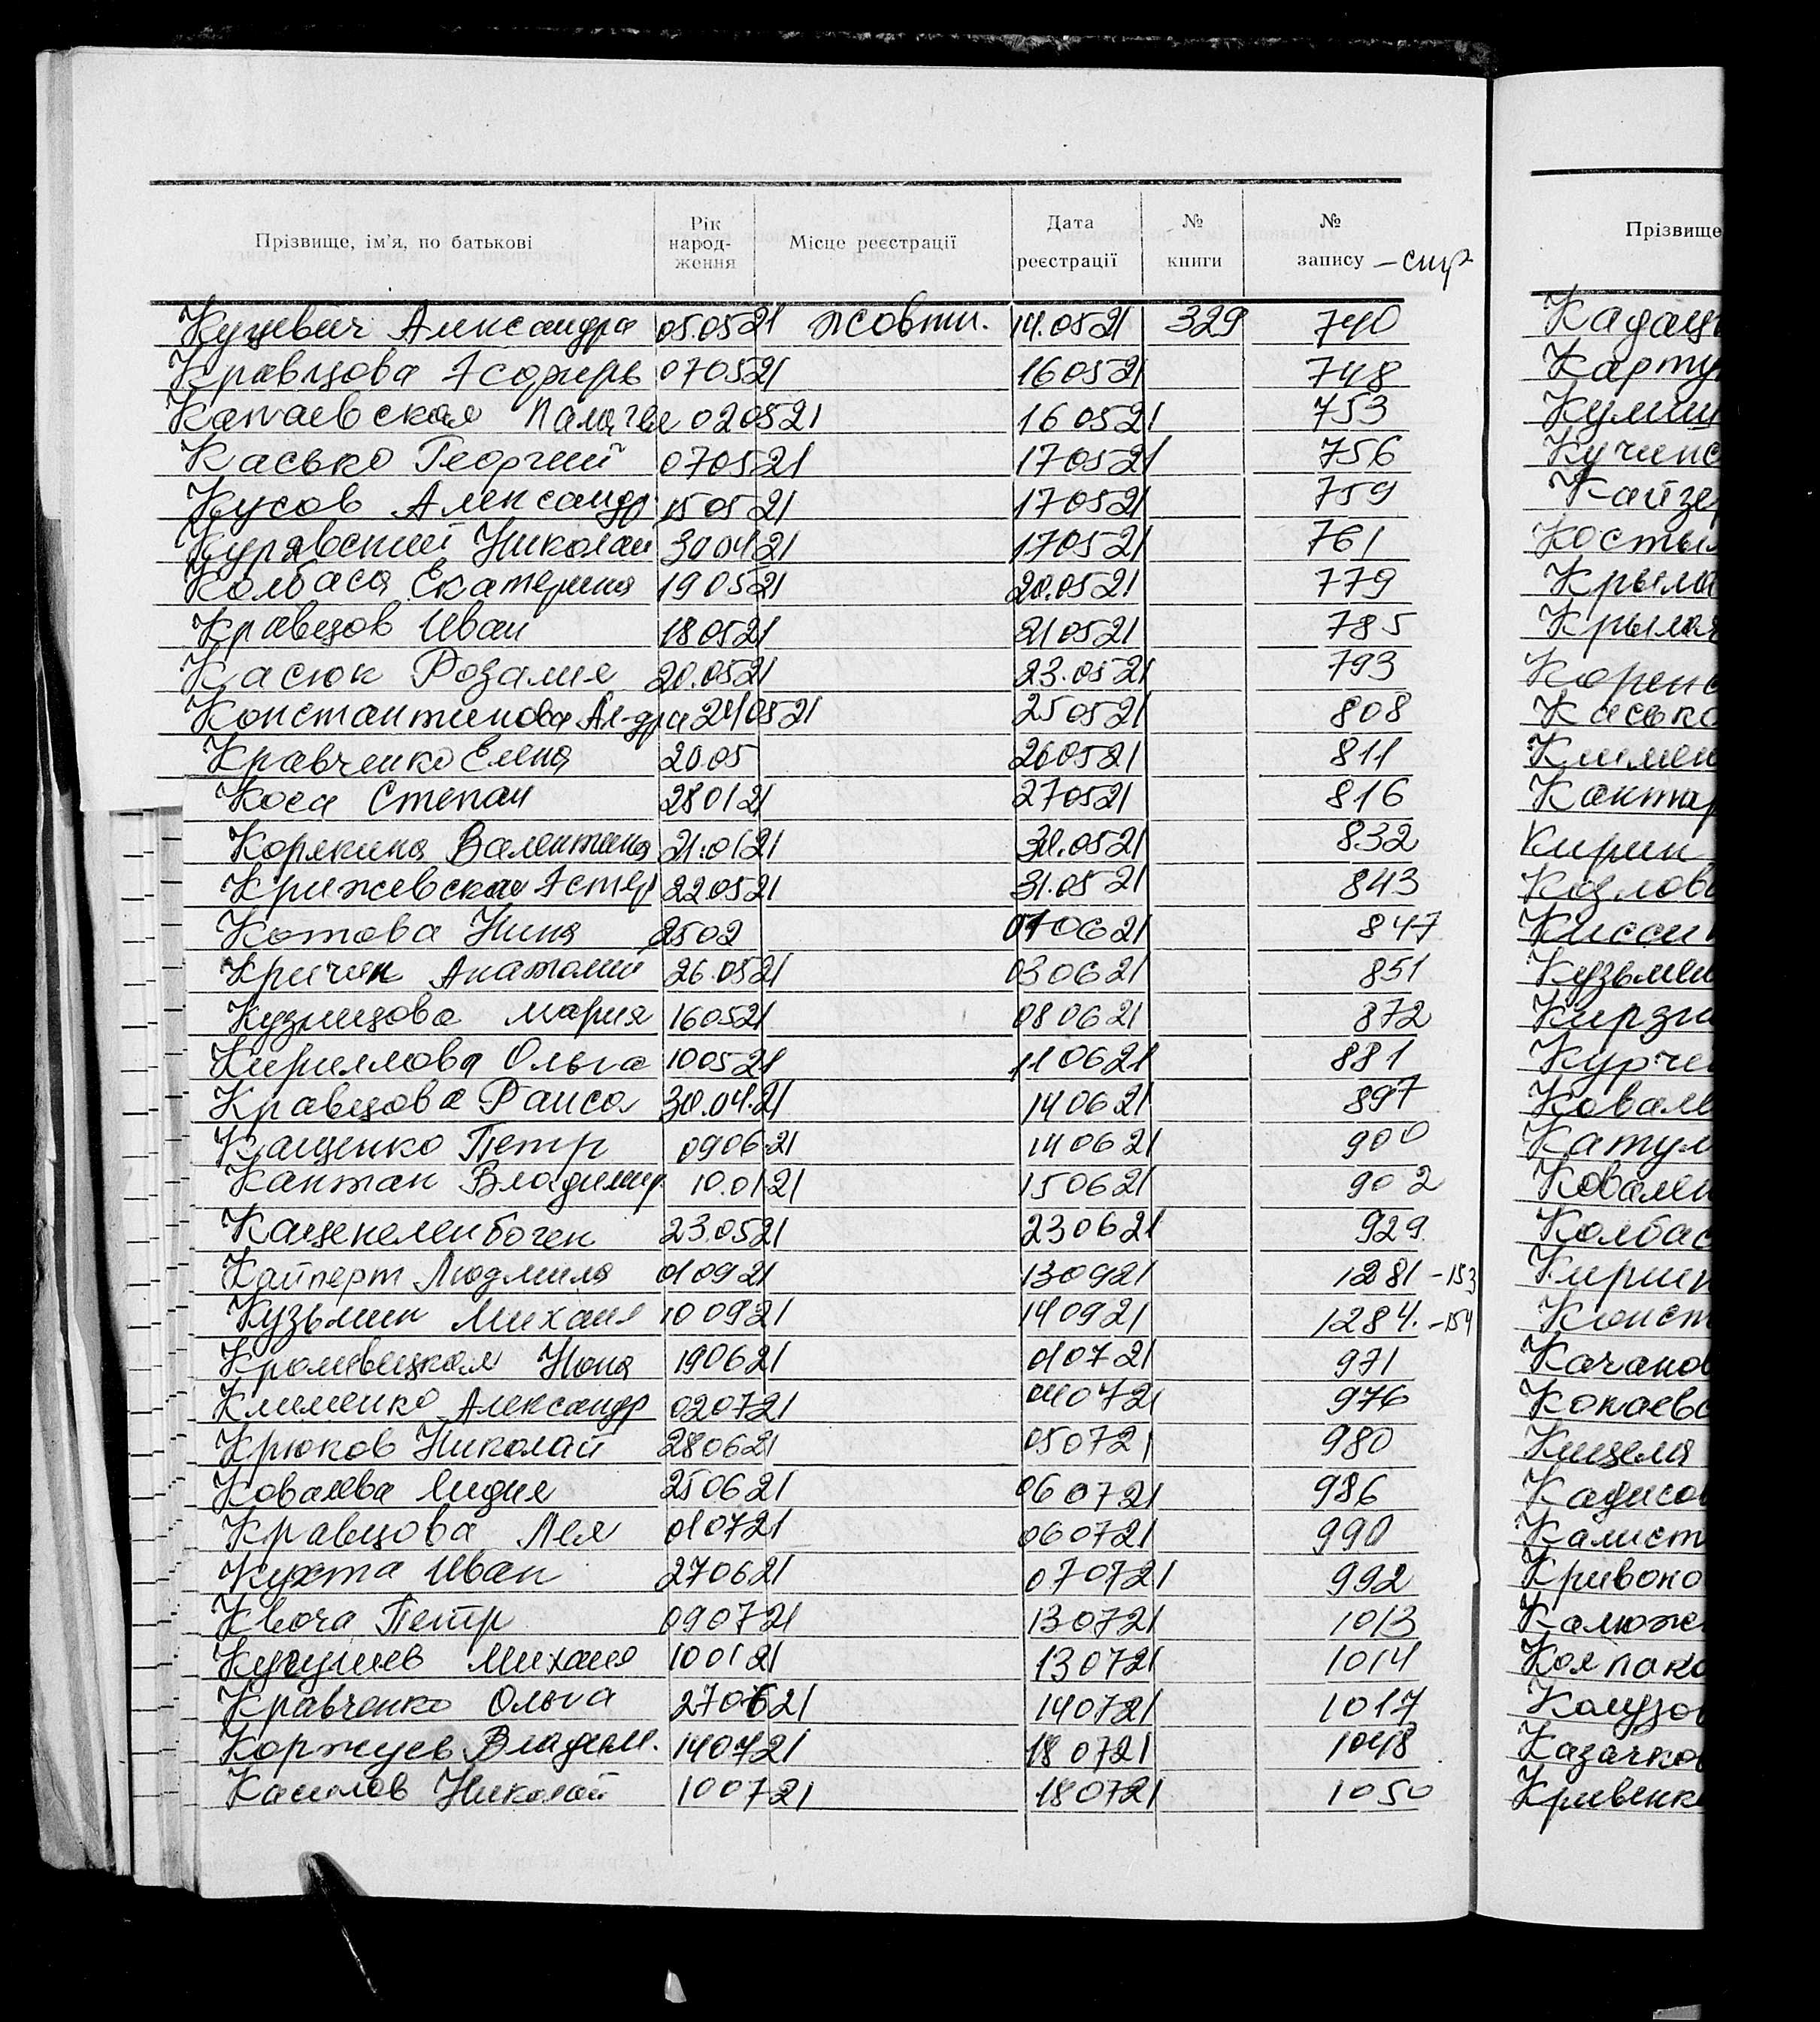 Прізвище, ім'я, по батькові Рік народ-ження Місце реєстрації Дата реєстрації № книги № запису – стр Прізвище
Куцевич Александра 05.0521 жовтн. 14.0521 329 740
Кравцова 070521 160521 748
Капаевская Палагея 020521 160521 753
Касько Георгий 070521 170521 756
Кусов Александр 150521 170521 759
Курявский Николай 300421 170521 761
Колбаса Екатерина 190521 20.0521 779
Кравцов Иван 180521 210521 785
Касюк Розалия 20.0521 23.0521 793
Константинова Ал-дра 240521 250521 808
Кравченко Елена 20.05 260521 811
Коса Степан 280121 270521 816
Корякина Валентина 21.0121 .0521 832
Крижевская Эстер 22.0521 31.0521 843
Котова Нина 2502 010621 847
Кричек Анатолий 26.0521 030621 851
Кузнецова Мария 160521 080621 872
Кириллова Ольга 100521 110621 881
Кравцова Раиса 30.04.21 140621 897
Кащенко Петр 0906.21 140621 900
Кантан Владимир 10.0121 150621 902
Каценеленбоген 23.0521 230621 929
Кайперт Людмила 010921 130921 1281 – 153
Кузьмин Михаил 100921 140921 1284. – 154
Кролевецкая Нона 190621 010721 971
Клименко Александр 020721 040721 976
Крюков Николай 280621 050721 980
Ковалева Лидия 250621 060721 986
Кравцова Лея 010721 060721 990
Кухта Иван 270621 070721 992
Квоча Петр 090721 130721 1013
Кугушев Михаил 100121 130721 1014
Кравченко Ольга 270621 140721 1017
Коржуев Владим. 140721 180721 1048
Камилов Николай 100721 180721 1050